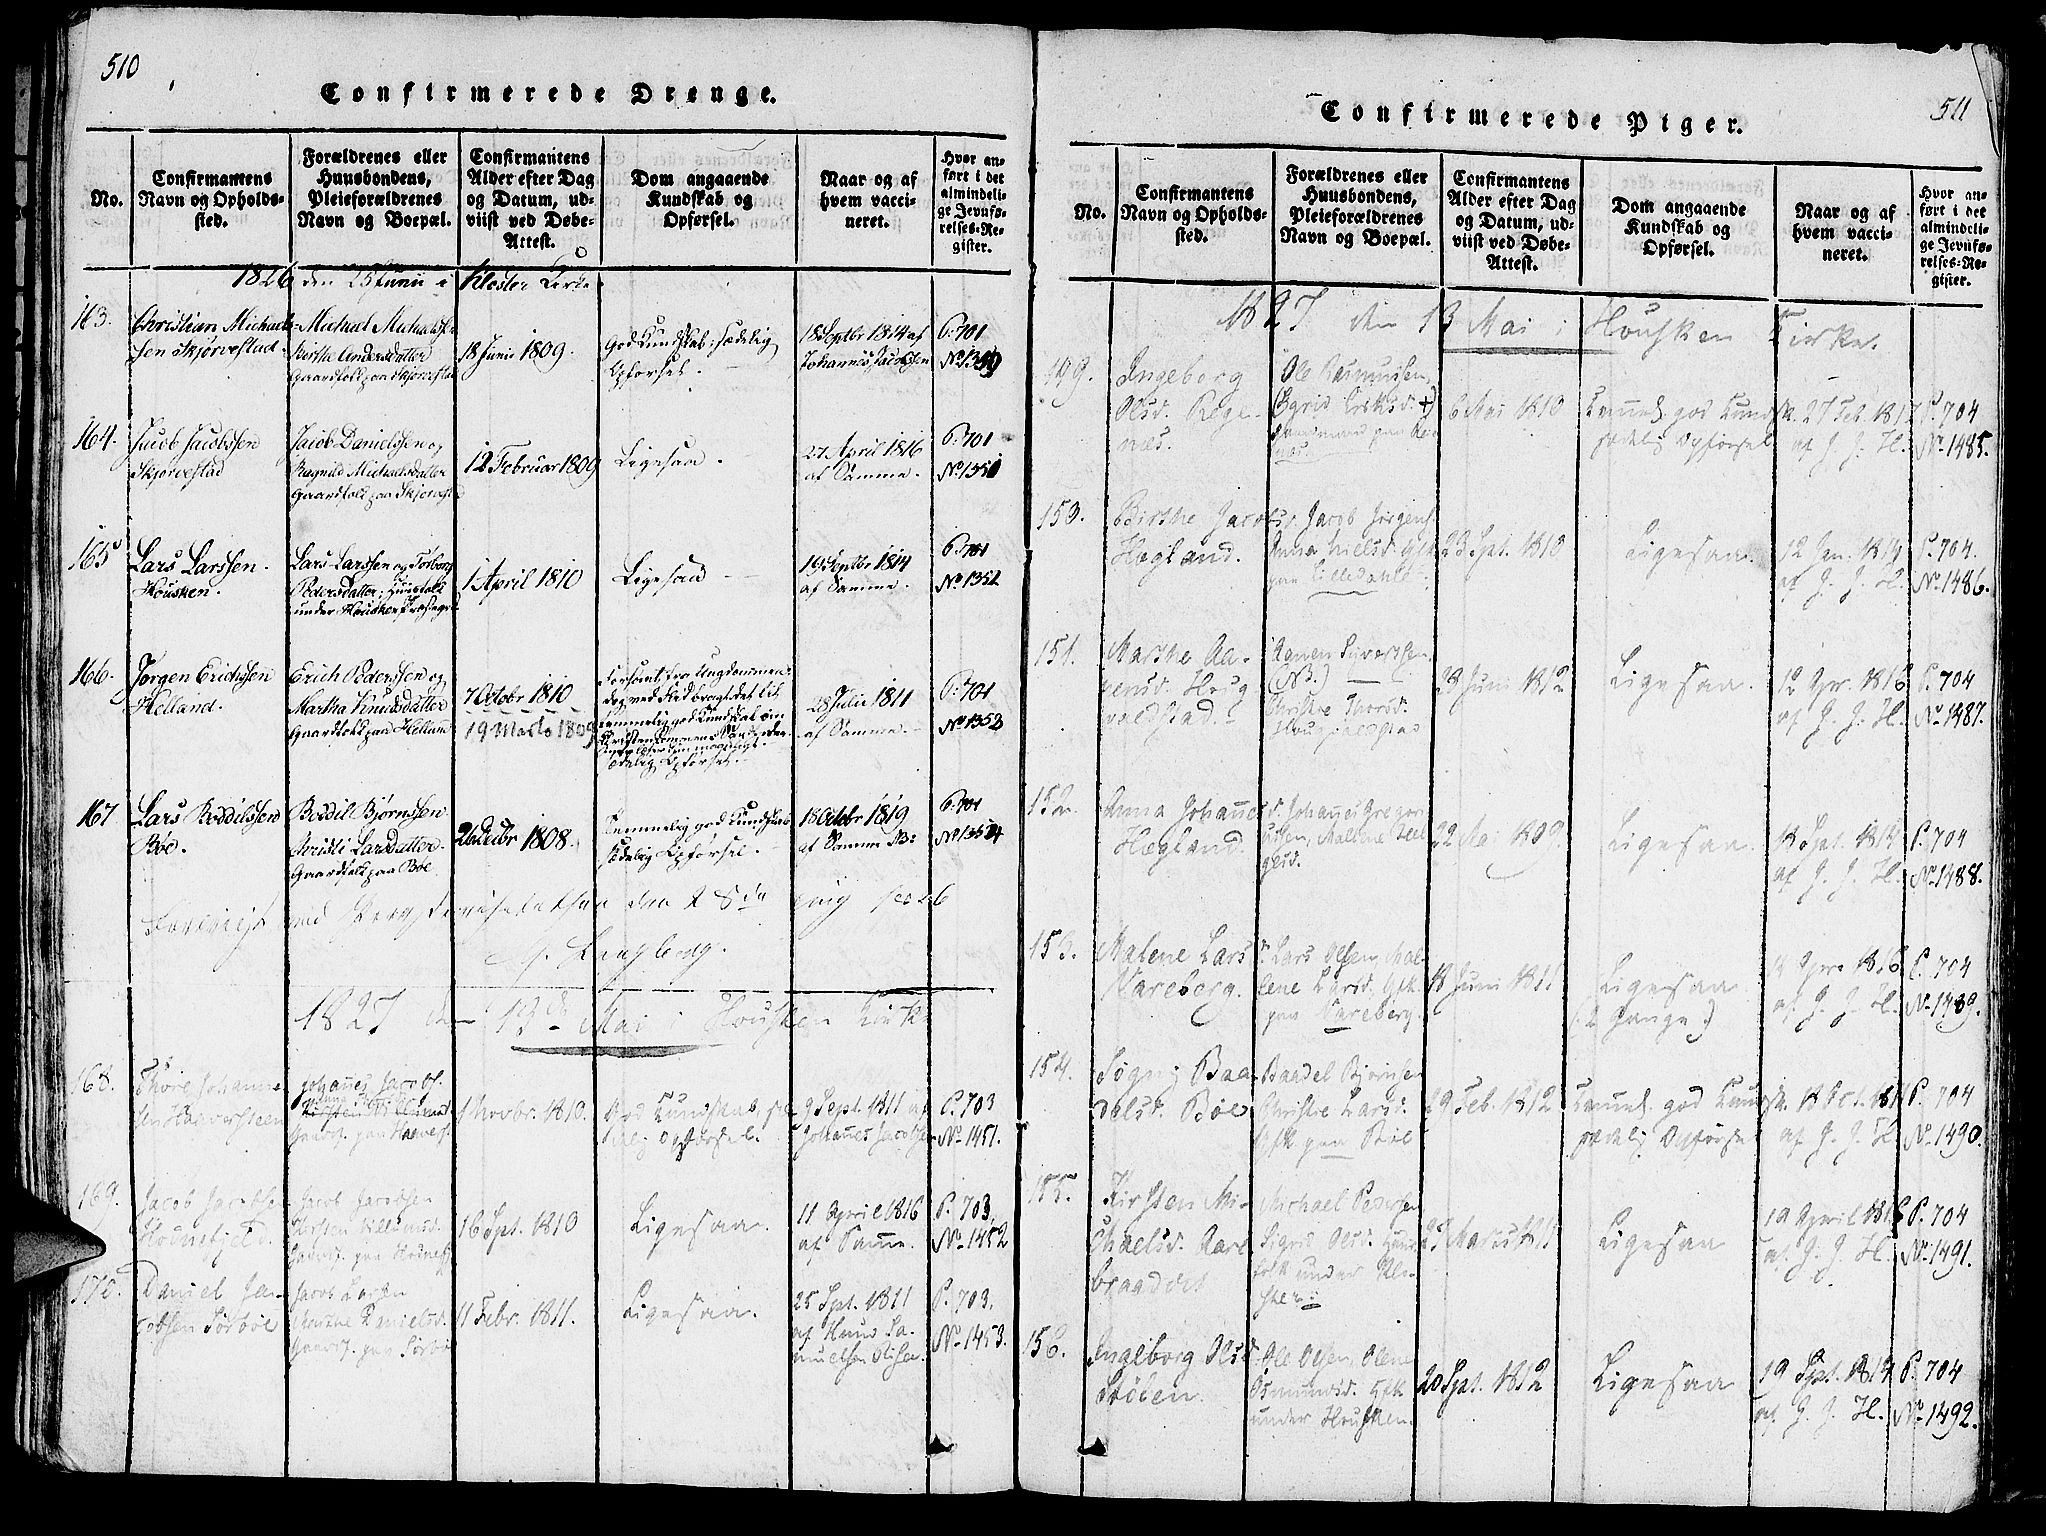 510
Confirmerede Drenge.
No.
Confirmantens
Navn og Opholds-
sted.
Forældrenes eller
Huusbondens,
Pleieforældrenes
Navn og Boepæl.
Confirmantens
Alder efter Dag
og Datum, ud-
viist ved Døbe-
Attest.
Dom angaaende
Kundskab og
Opførsel.
Naar og af
hvem vacci-
neret.
Hvor an-
ført i det
almindeli-
ge Jevnfø-
relses-Re-
gister.
1826 den 25 Junii i Kloster Kirke
163.
Christian Michael-
sen Skjørvestad.
Michael Michaelsen
Birthe Andersdatter
Gaardfolk paa Skjørvestad
18 Junii 1809.
God Kundskab; sædelig
Opførsel.
18 Septbr 1814 af
Johannes Jacobsen
P: 701
No 1350
164.
Jacob Jacobsen
Skjørvestad
Jacob Danielssen og
Ragnild Michaelsdatter
Gaardfolk paa Skjørvest
12 Februar 1809
Ligesaa.
27 April 1816
af Samme.
P: 701
No 1351
165
Lars Larssen.
Housken.
Lars Larssen og Torborg
Pedersdatter; Huusfolk
under Housken Præstegrd
1 April 1810
Ligesaa
19 Septbr 1814
af Samme.
P: 701
No 1352
166.
Jørgen Erichsen
Helland.
Erich Pedersen og
Martha Knudsdatter
Gaardfolk paa Helland
7 Octobr 1810
19 Marts 1809
temmelig god Kundskab om
sædelig Opførsel.
28 Julii 1811
af Samme.
P: 701
No 1353
167
Lars Boddelssen
Bøe.
Boddil Bjørnssen
Christi Larsdatter
Gaardfolk paa Bøe
26 Decbr 1808.
Temmelig god Kundskab
sædelig Opførsel.
13 Octobr 1819
af Samme NB:
P: 701
No 1354
Foreviist ved Provstevisitatsen den 28de Aug 1826
1827 den 13de Mai i Housken Kirke
168.
Thore Johanne-
sen Haaversteen
Johannes Jacobs.
Gaardf. paa Haavest.
1 Novbr. 1810.
God Kundskab, sæ-
delig Opførsel.
9 Sept. 1811 af
Johannes Jacobsen
P. 703
No 1451.
169.
Jacob Jacobsen
Hodnefjeld.
Jacob Jacobsen
Kirsten Villumsd.
Gaardf. paa Hodnefj
16 Sept. 1810
Ligesaa.
11 April 1816
af Samme.
P. 703.
No 1452
170.
Daniel Ja-
cobsen Sørbøe
Jacob Larsen
Marthe Danielsd.
Gaardf. paa Sørbø
11 Febr. 1811.
Ligesaa.
25 Sept. 1811
af Knud Sa-
muelsen
P. 703.
No 1453.
511
Confirmerede Piger.
No.
Confirmantens
Navn og Opholds-
sted.
Forældrenes eller
Huusbondens,
Pleieforældrenes
Navn og Boepæl.
Confirmantens
Alder efter Dag
og Datum, ud-
viist ved Døbe-
Attest.
Dom angaaende
Kundskab og
Opførsel.
Naar og af
hvem vacci-
neret.
Hvor an-
ført i det
almindeli-
ge Jevnfø-
relses-Re-
gister.
1827 den 13 Mai i Housken Kirke.
149.
Ingeborg
Olsd. Rege-
næs.
Ole Rasmussen,
(Sigrid Eriksd. +)
Huusmand paa Re-
næs.
6 Mai 1810
Temmel. god Kundsk.
sædelig Opførsel
27 Feb. 1817
af J. J. H.
P. 704
No 1485.
150.
Birthe Jacobs.
Hegland.
Jacob Jørgens.
Anna Nielsd. Gfk
paa Lilledahle
23 Sept. 1810
Ligesaa.
12 Jan. 1814
af J. J. H.
P. 704.
No 1486.
151.
Marthe Aa-
nensd. Houg-
valdstad.
Aanen Syvertsen
(NB.)
Christie Thorsd.
28 Juni 1812
Ligesaa.
12 Apr. 1816
af J. J. H.
P. 704
No 1487.
152.
Anna Johannesd.
Hegland.
Johannes Gregori-
ussen, Mallene Hel-
gesd.
22 Mai 1809.
Ligesaa.
18 Sept. 1814
af J. J. H.
P. 704
No 1488.
153.
Malene Larsd.
Vareberg.
Lars Olsen, Mal-
lene Larsd. Gfk
paa Vareberg.
18 Juni 1811
Ligesaa
(2 Gange.)
Apr. 1816
af J. J. H.
P. 704
No 1489.
154.
Søgni Baa-
delsd. Bøe
Baadel Bjørnsen
Christie Larsd.
Gfk paa Bøe
29 Feb. 1812
Temmel. god Kundsk.
sædelig Opførsel
18 Oct. 181
af J. J. H.
P. 704
No 1490.
155.
Kirsten Mi-
chaelsd. Aare-
braadet
Michael Pedersen
Sigrid Olsd. Huus-
folk under Klo-
ster
25 Marts 1811
Ligesaa
19 April 1816
af J. J. H.
P. 704
No 1491.
156.
Ingeborg Olsd.
Støden.
Ole Olsen, Olene
Osmundsd. Gfk
under Housken.
20 Sept. 1812
Ligesaa
19 Sept. 1814
af J. J. H.
P. 704
No 1492.